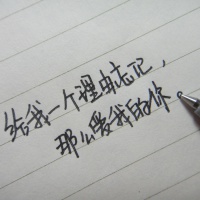 给我一个理由忘记，
那么爱我的你